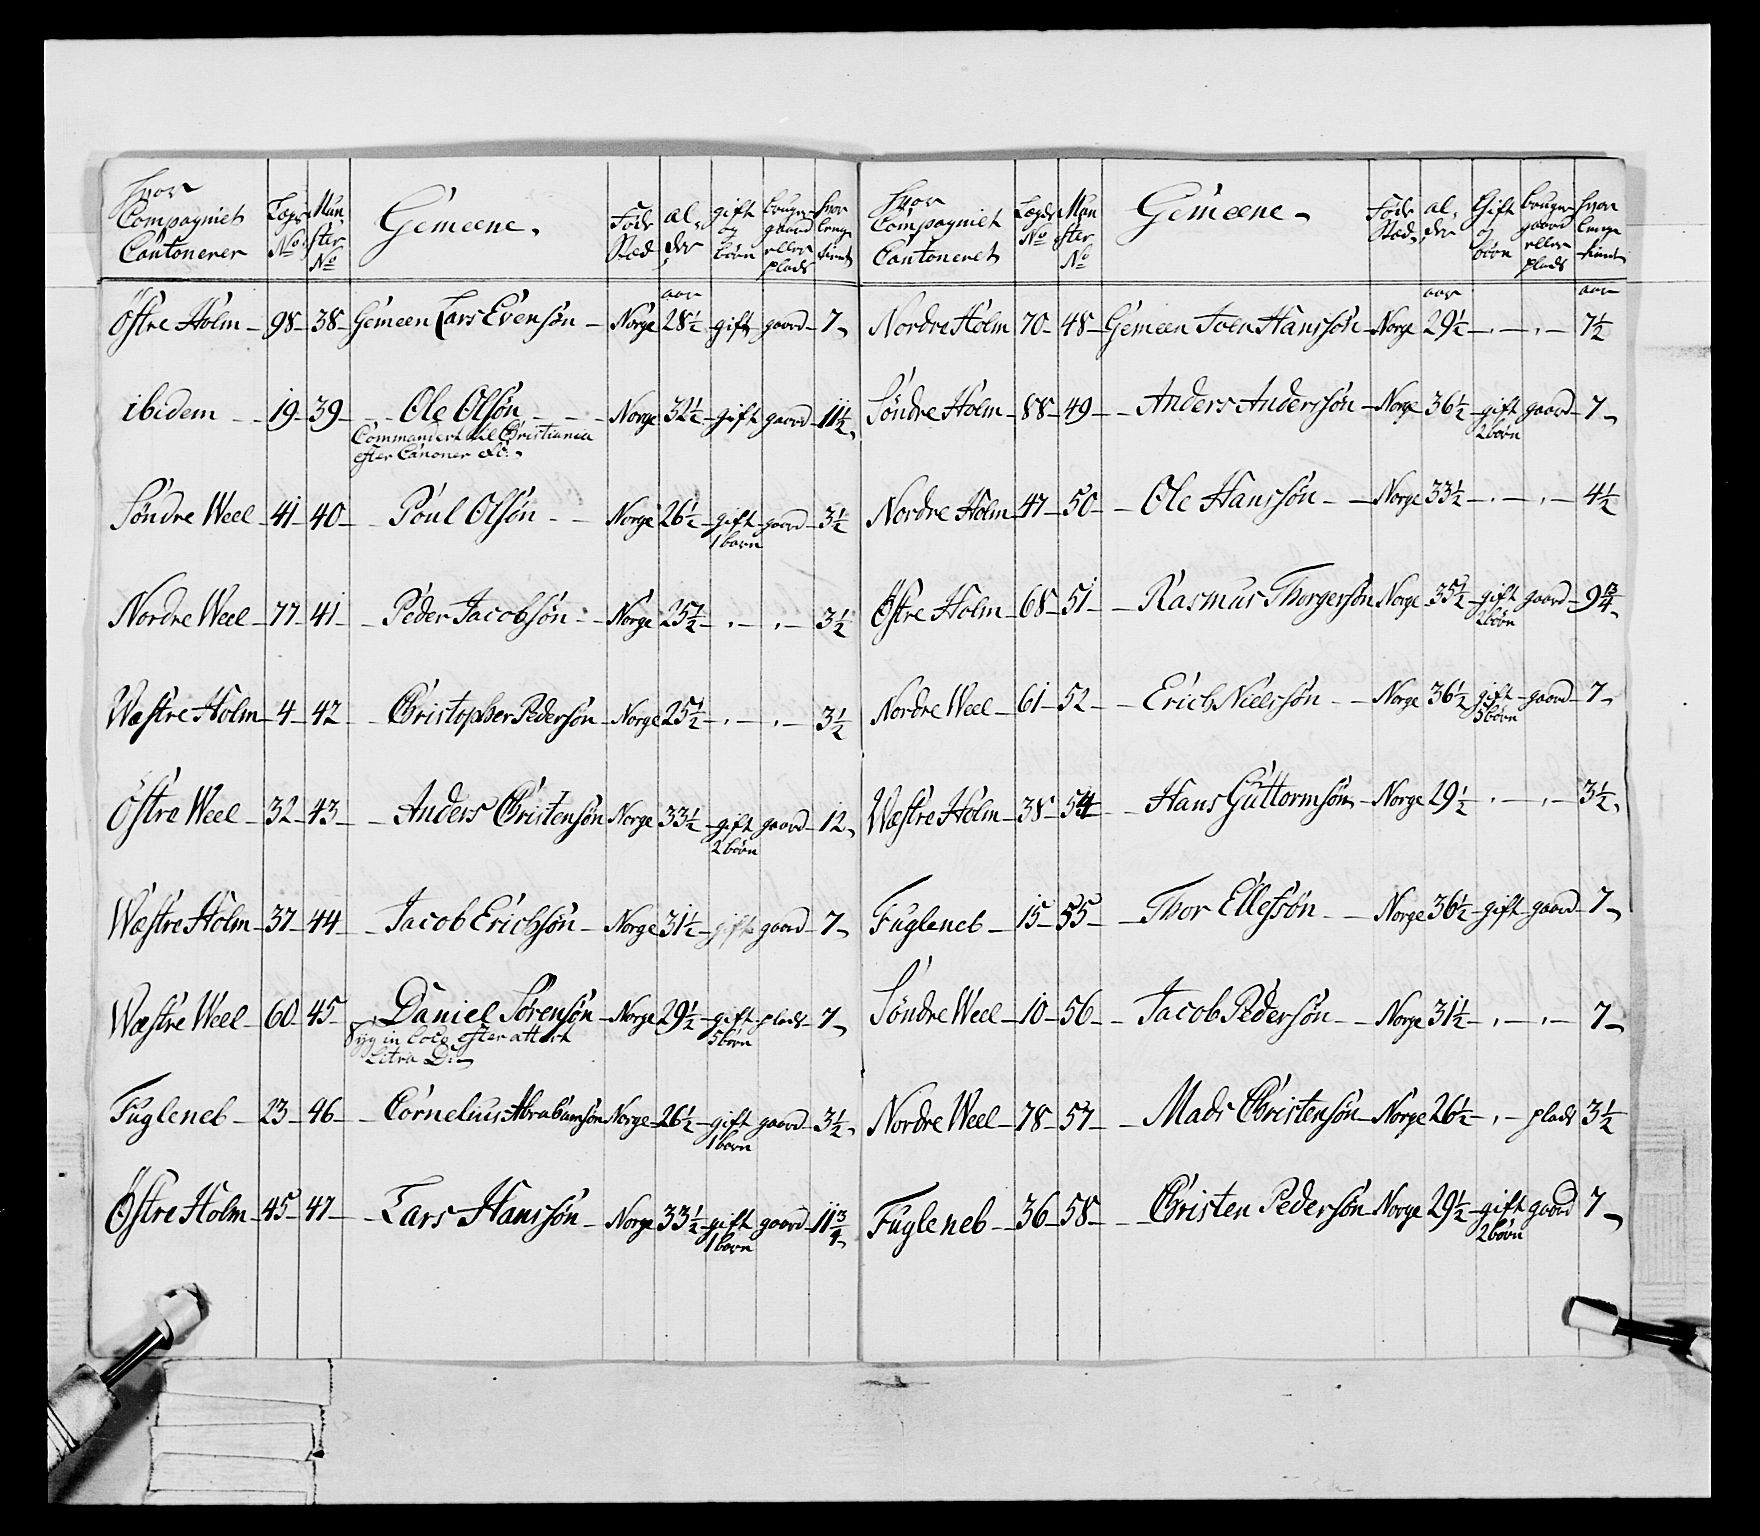 Hvor Compagniet Cantonerer | Lægs No | Mun-ster No | Gemeene. | Føde Stæd | al-der | gift og børn | bruger gaard eller plads | hvor lenge tient
aar
Östre Holm - 98 - 38 - Gemeen Lars Evensøn - Norge 28½ - gift - gaard - 7 -
ibidem - 19 - 39 - Ole Olsøn - Norge 32½ - gift - gaard - 11½
Commandert til Christiania
efter Canoner &c:
Söndre Weel - 41 - 40 - Poul Olsøn - Norge 26½ - gift - gaard - 3½
1 barn
Nordre Weel - 77 - 41 - Peder Jacobsøn - Norge 25½ - . - . - 3½
Wæstre Holm - 4 - 42 - Christopher Pedersøn - Norge 25½ - . - . - 3½
Östre Weel - 32 - 43 - Anders Christensøn Norge 33½ - gift gaard - 12 -
2 børn
Wæstre Holm - 37 - 44 - Jacob Erichsøn - Norge 31½ - gift gaard - 7 -
Wæstre Weel - 60 - 45 - Daniel Sørensøn - Norge 29½ - gift plads - 7 -
5 børn
Syg in loco efter attest
Litra D:
Fugleneb - 23 - 46 - Cornelius Abrahamsøn Norge 26½ - gift gaard - 3½
1 barn
Östre Holm - 45 - 47 - Lars Hanssøn - Norge 33½ - gift gaard - 11¾
1 barn
Hvor Compagniet Cantoneret | Lægds No | Mun-ster No | Gemeene - | Føde Stæd | al-der | Gift og børn | bruger gaard eller plads | hvor lenge tient
aar aar
Nordre Holm 70 - 48 - Gemeen Joen Hanssøn - Norge 29½ - . - . - 7½
Söndre Holm - 88 - 49 - Anders Anderssøn - Norge 36½ - gift gaard - 7 -
2 børn
Nordre Holm - 47 - 50 - Ole Hanssøn - Norge 33½ - . - . - 4½
Östre Holm - 68 - 51 - Rasmus Thorgersøn Norge 35½ - gift gaard - 9¾
2 børn
Nordre Weel - 61 - 52 - Erich Nielssøn - Norge 36½ gift - gaard - 7 -
5 børn
Wæstre Holm - 38 - 54 - Hans Guttormsøn - Norge 29½ . - . - 3½
Fugleneb - 15 - 55 - Thor Ellefsøn - Norge 36½ - gift gaard - 7 -
Söndre Weel - 10 - 56 - Jacob Pedersøn - Norge 31½ - . - . - 7 -
Nordre Weel - 78 - 57 - Mads Christensøn - Norge 26½ - . - plads 3½
Fugleneb - 36 - 58 - Christen Pedersøn Norge 29½ - gift gaard 7 -
2 børn